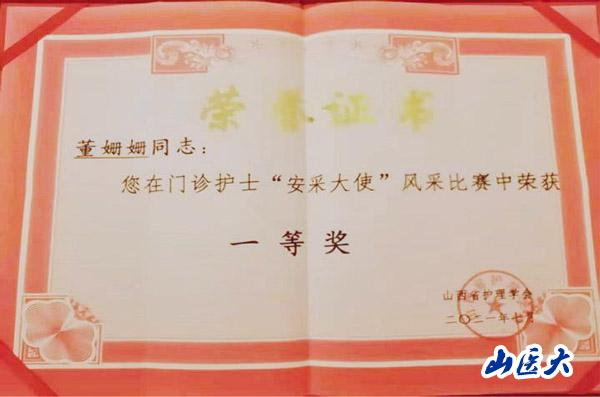 荣誉证书
董姗姗同志：
您在门诊护士“安采大使”风采比赛中荣获
一等奖
山西省护理学会
二〇二一年七月
山医大